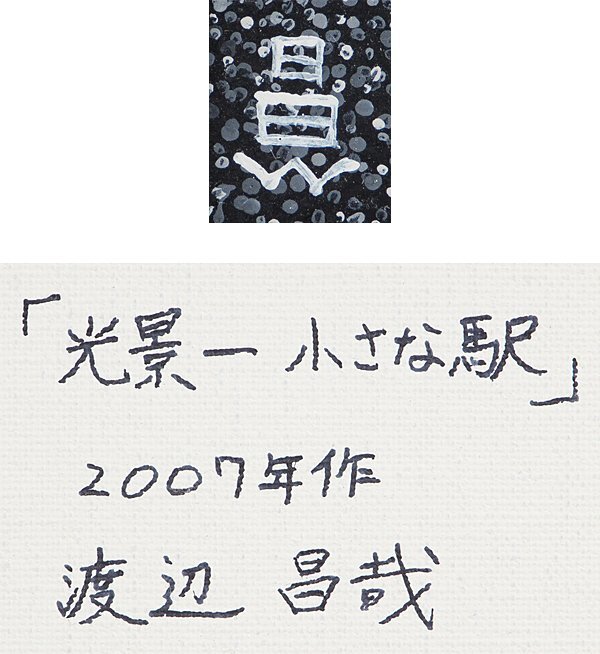 昌
W
「光景― 小さな駅」
2007年作
渡辺 昌哉